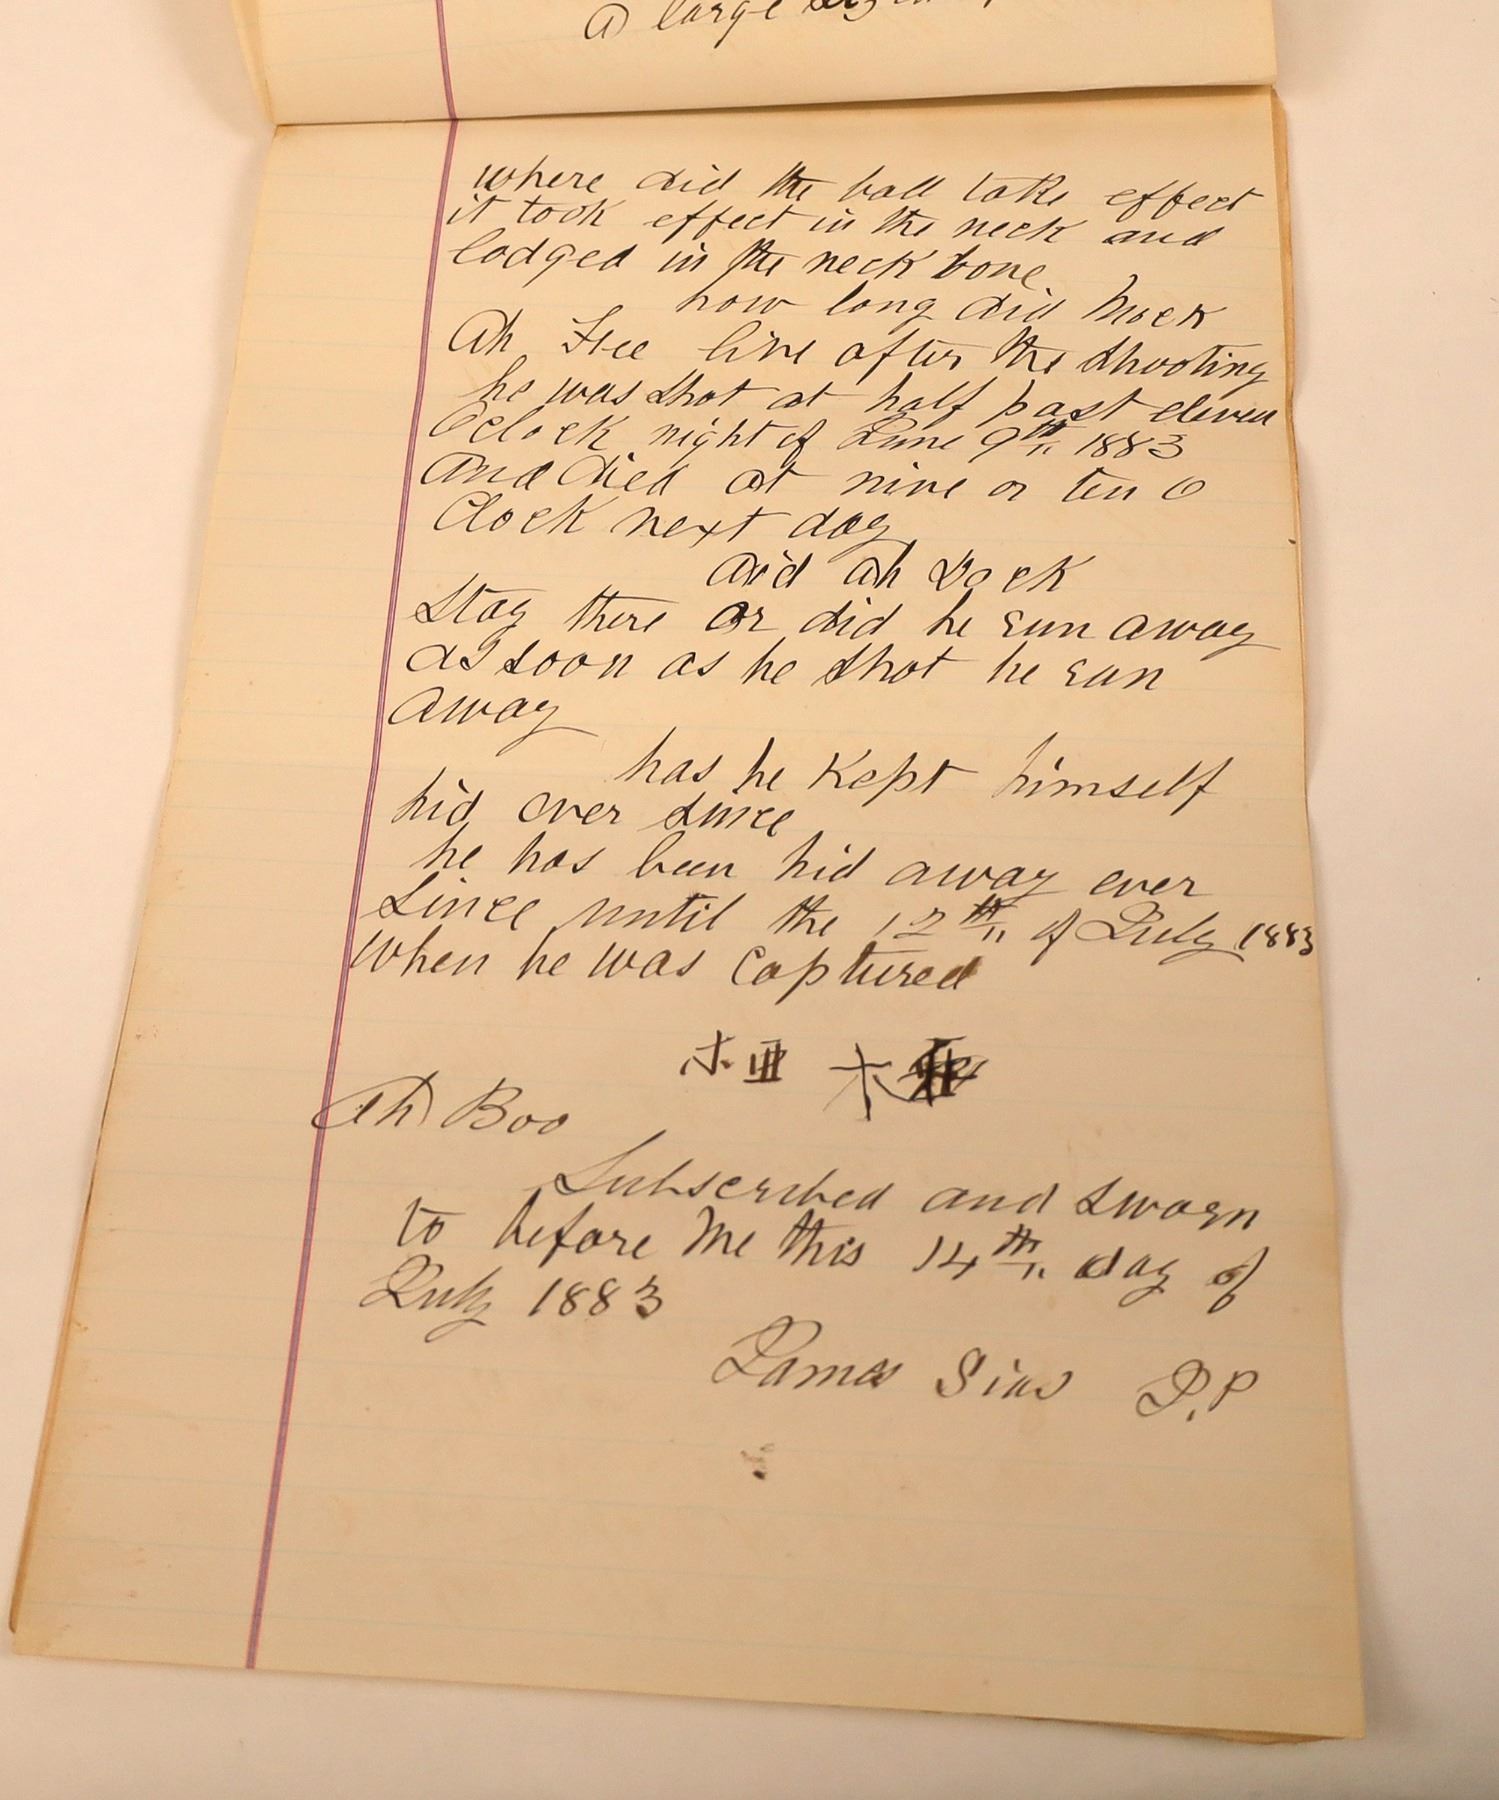 a large
where did the ball take effect
it took effect in the neck and
lodged in the neck bone
how long did Mock
Ah Fee live after the shooting
he was shot at half past eleven
Oclock night of June 9th 1883
and died at nine or ten O
Clock next day
did ah Dock
Stay there or did he run away
as soon as he shot he run
away
has he kept himself
hid ever since
he has been hid away ever
since until the 12th of July 1883
when he was captured
亚
Ah Boo
Subscribed and sworn
to before me this 14th day of
July 1883
James Sias J.P